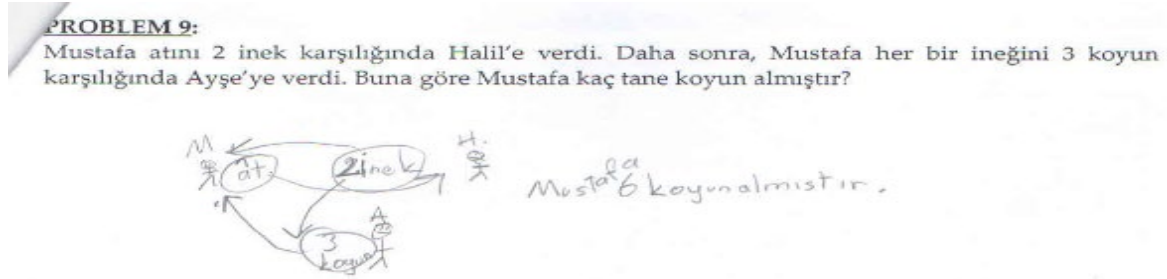 PROBLEM 9:
Mustafa atını 2 inek karşılığında Halil'e verdi. Daha sonra, Mustafa her bir ineğini 3 koyun
karşılığında Ayşe'ye verdi. Buna göre Mustafa kaç tane koyun almıştır?
M
H.
at.
2inek
Mustafa 6 koyun almıstır.
A
3
koyun